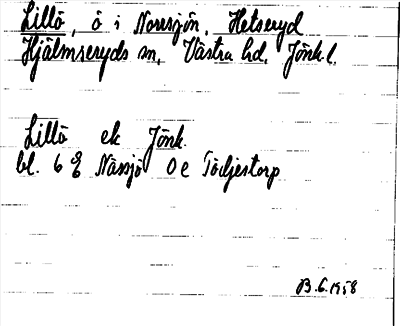 Lillö, ö i Norrsjön, Hetseryd
Hjälmseryds sn, Västra hd, Jönk l.
Lillö ek Jönk.
bl. 6 E Nässjö 0 e Tödjestorp
B.G. 1958